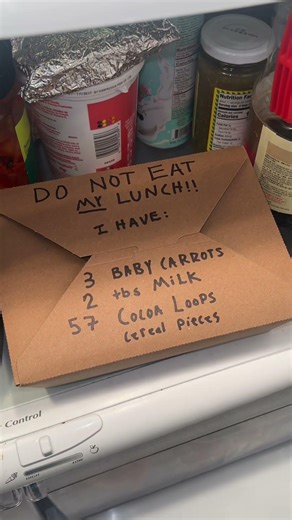 DO NOT EAT
MY LUNCH!!
I HAVE:
3 BABY CARROTS
2 tbs MILK
57 COCOA LOOPS
cereal Pieces
Nutrition Facts
Calories
Control